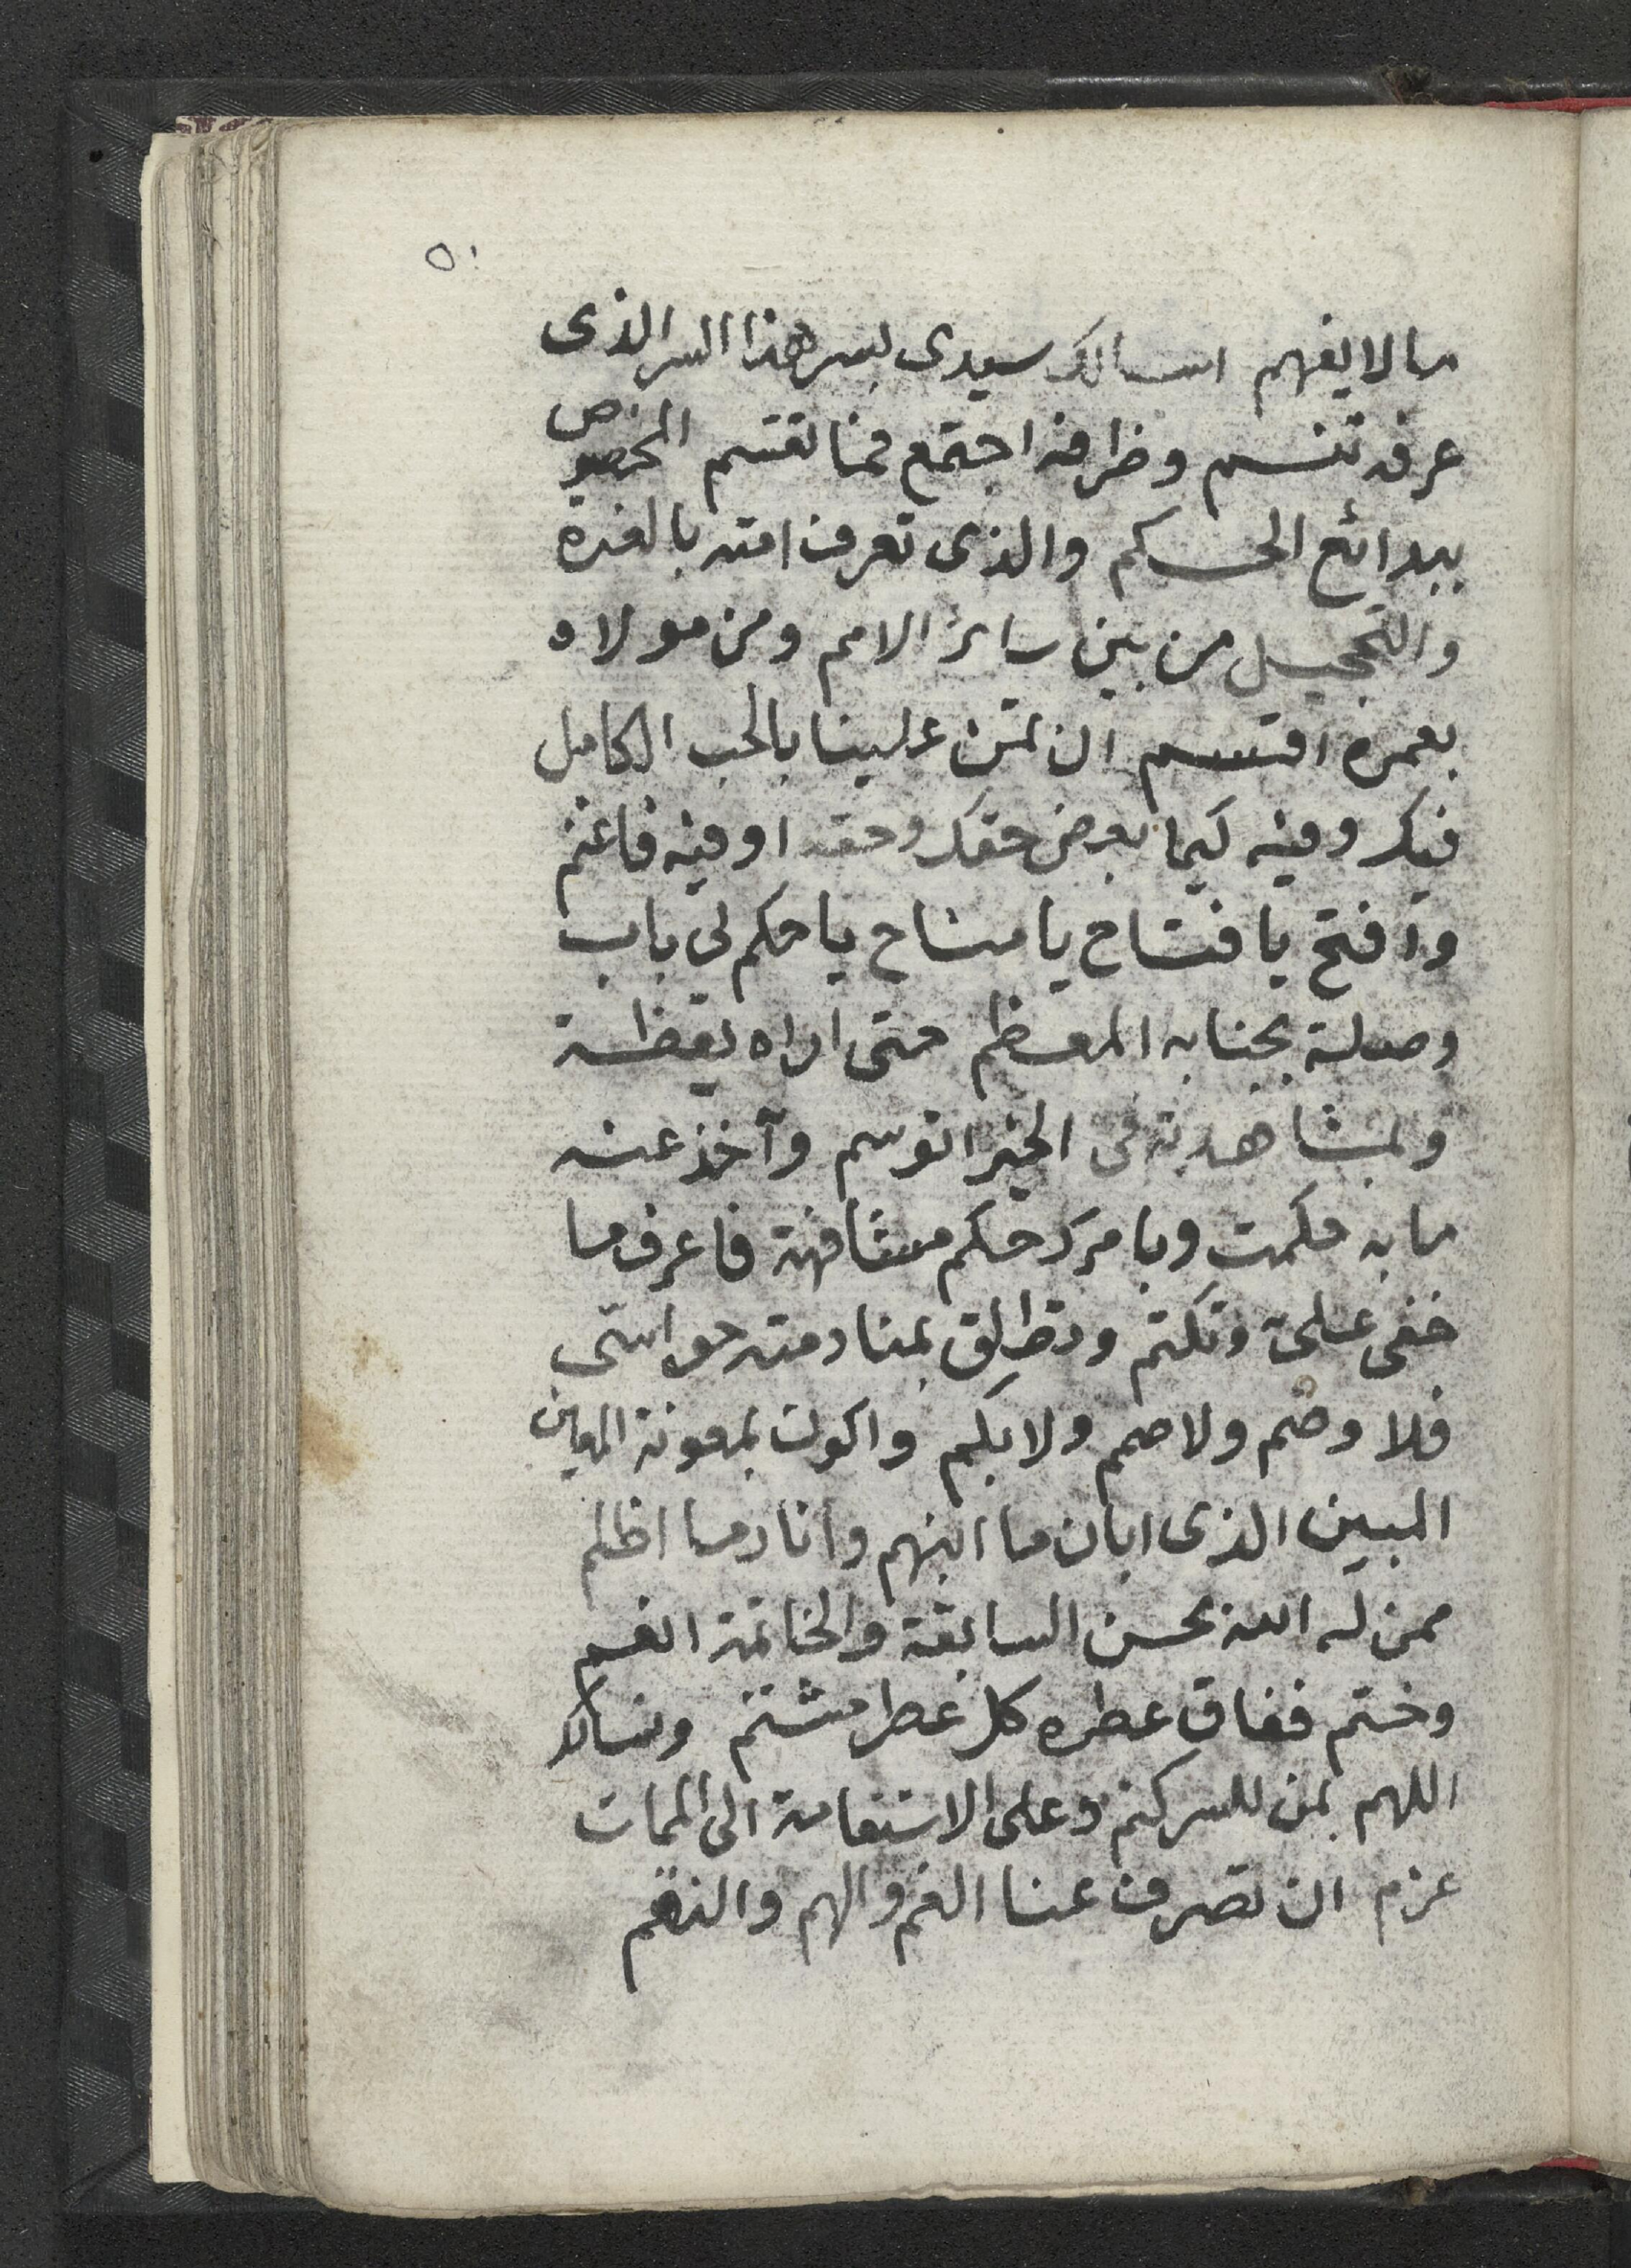 ٥٠
ما لا يفهم اسالك سيدى بسر هذا السر الذى
عرفه تنسم وظرفه اجتمع فما نقتسم المخصوص
ببدائع الحكم والذى تعرف امته بالغرة
والتحجيل من بين سائر الامم ومن مولاه
بعمره اقسم ان تمن علينا بالحب الكامل
فيك وفيه كيما بعض حقك وحقه اوفيه فاغنم
وافتح يا فتاح يا مناح يا حكم لى باب
وصلة بجنابه المعظم حتى اراه يقظة
وبمشاهدته فى الخير اتوسم وآخذ عنه
ما به حكمت وبامرك حكم مشافهة فاعرف ما
خفى علىّ وتكتم وتطلق بمنادمته حواسى
فلا وصم ولا صمم ولا بكم واكون بمعونة المعين
المبين الذى ابان ما انبهم وانار ما اظلم
ممن له الله بحسن السابقة والخاتمة انعم
وختم ففاق عطره كل عطر مشتم ونسالك
اللهم بمن للسر كتم وعلى الاستقامة الى الممات
عزم ان تصرف عنا الغم والهم والنقم